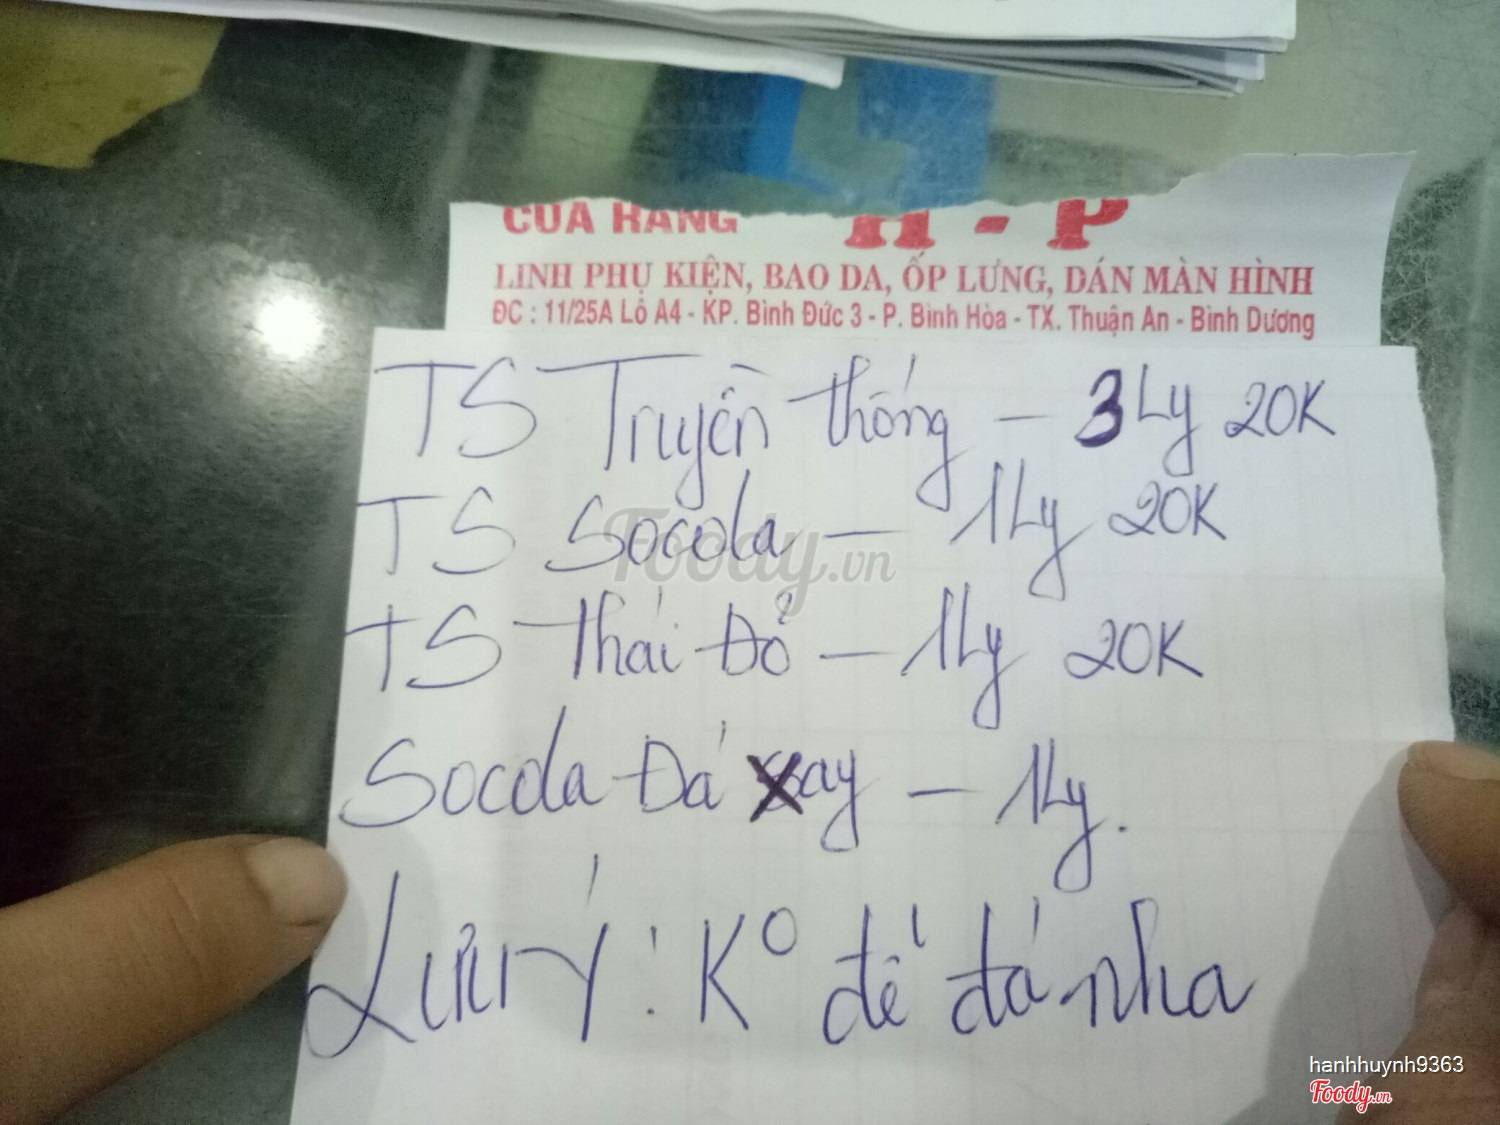 CỬA HÀNG H - P
LINH PHỤ KIỆN, BAO DA, ỐP LƯNG, DÁN MÀN HÌNH
ĐC : 11/25A Lô A4 - KP. Bình Đức 3 - P. Bình Hòa - TX. Thuận An - Bình Dương
TS Truyền thống - 3 Ly 20K
TS Socola - 1 Ly 20K
TS Thái Đỏ - 1 Ly 20K
Socola Đá xay - 1 Ly.
Lưu ý : Ko để đá nha
Foody.vn
hanhhuynh9363
Foody.vn